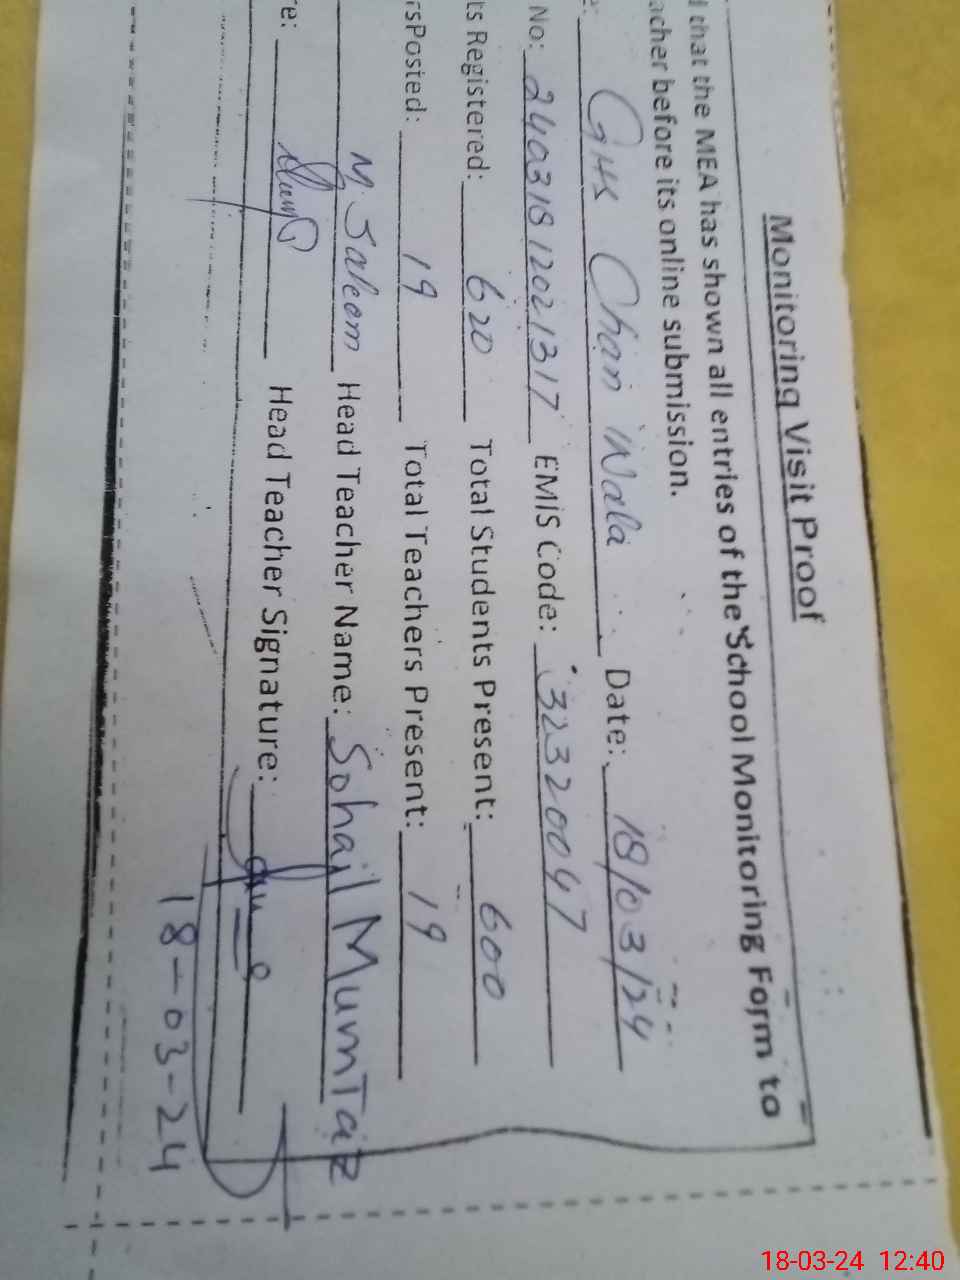 Monitoring Visit Proof
that the MEA has shown all entries of the School Monitoring Form to
acher before its online submission.
GHS Chan Wala Date: 18/03/24
No: 24031812021317 EMIS Code: 32320047
ts Registered: 620 Total Students Present: 600
rsPosted: 19 Total Teachers Present: 19
M. Saleem Head Teacher Name: Sohail Mumtaz
re: Head Teacher Signature:
18-03-24
18-03-24 12:40